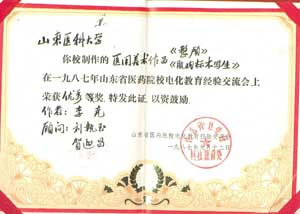 山东医科大学
你校制作的 医用美术作品《整顾》
《肌肉标本写生》
在一九八七年山东省医药院校电化教育经验交流会上
荣获优秀等奖,特发此证,以资鼓励.
作者: 李克
顾问: 刘执玉
贺迎昌
山东省医药院校电化教育
一九八七年 月十二日